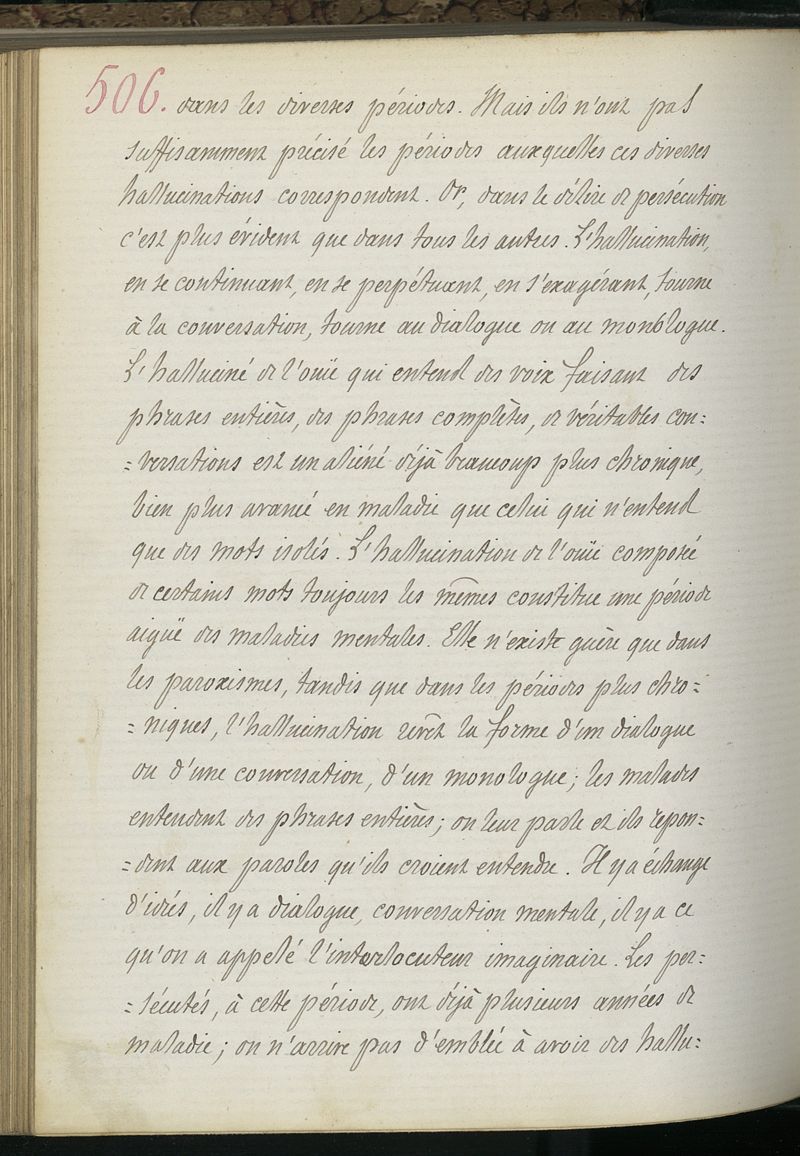 506. dans les diverses périodes. Mais ils n'ont pas
suffisamment précisé les périodes auxquelles ces diverses
hallucinations correspondent. Or, dans le délire de persécution
c'est plus évident que dans tous les autres. L'hallucination,
en se continuant, en se perpétuant, en s'exagérant, tourne
à la conversation, tourne au dialogue ou au monologue.
L'halluciné de l'ouïe qui entend des voix faisant des
phrases entières, des phrases complètes, de véritables con=
=versations est un aliéné déjà beaucoup plus chronique,
bien plus avancé en maladie que celui qui n'entend
que des mots isolés. L'hallucination de l'ouïe composée
de certains mots toujours les mêmes constitue une période
aiguë des maladies mentales. Elle n'existe guère que dans
les paroxismes, tandis que dans les périodes plus chro=
=niques, l'hallucination revêt la forme d'un dialogue
ou d'une conversation, d'un monologue; les malades
entendent des phrases entières; on leur parle et ils repon=
=dent aux paroles qu'ils croient entendre. Il y a échange
d'idées, il y a dialogue, conversation mentale, il y a ce
qu'on a appelé l'interlocuteur imaginaire. Les per=
=sécutés, à cette période, ont déjà plusieurs années de
maladie; on n'arrive pas d'emblée à avoir des hallu=